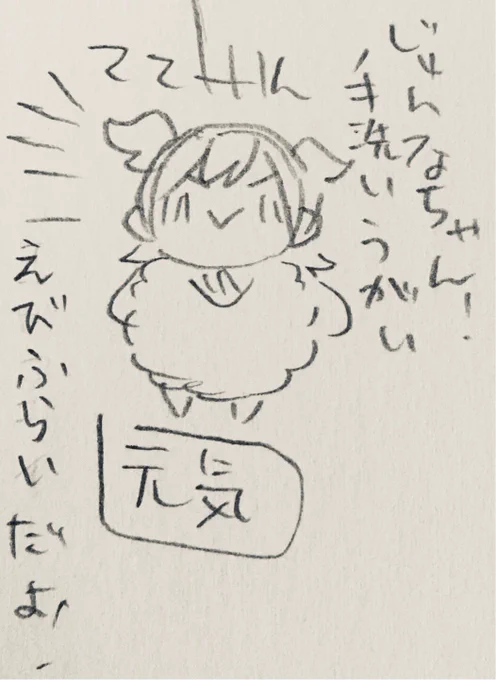 じゅんなちゃん!
手洗いうがい
えびふらいだよ!
元気に